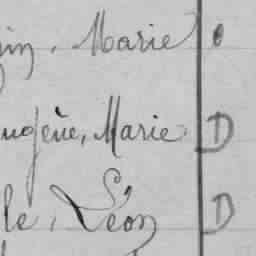 in, Marie
ugène, Marie D
le, Léon D